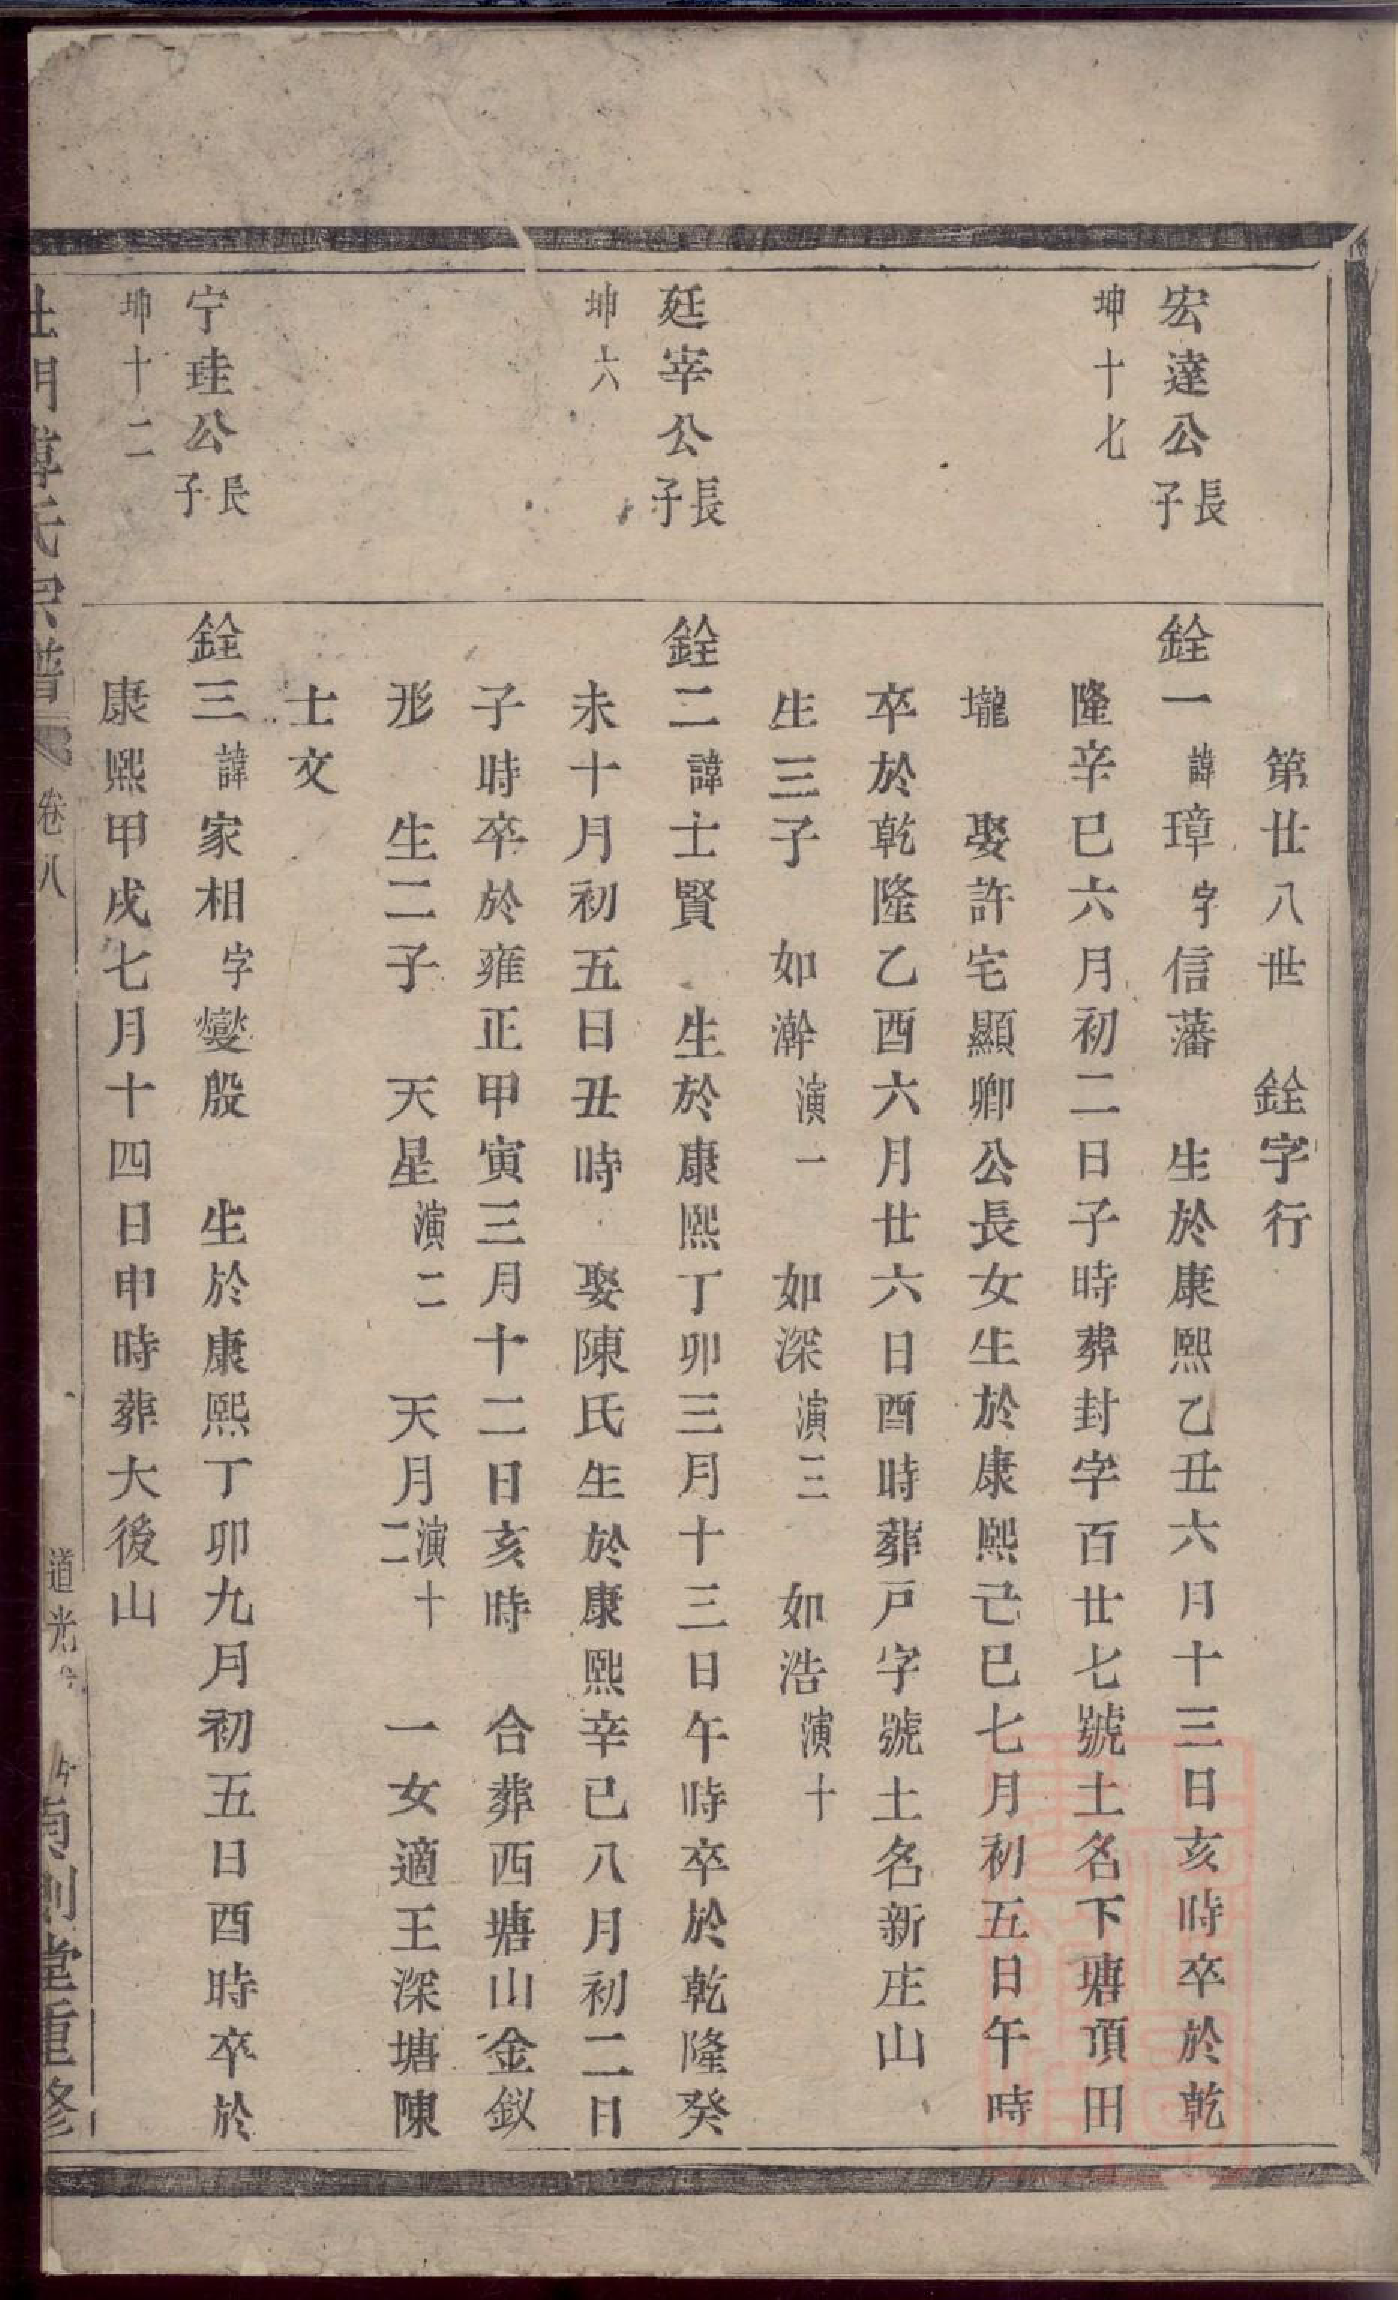 第廿八世　銓字行
宏達公長子
坤十七
銓一諱璋字信藩　生於康熙乙丑六月十三日亥時卒於乾
隆辛巳六月初二日子時葬封字百廿七號土名下塘頂田
壠　娶許宅顯卿公長女生於康熙己巳七月初五日午時
卒於乾隆乙酉六月廿六日酉時葬戸字號土名新庄山
生三子　如澣演一　如深演三　如浩演十
廷宰公長子
坤六
銓二諱士賢　生於康熙丁卯三月十三日午時卒於乾隆癸
未十月初五日丑時　娶陳氏生於康熙辛巳八月初二日
子時卒於雍正甲寅三月十二日亥時　合葬西塘山金釵
形　生二子　天星演二　天月演十二　一女適王深塘陳
士文
宁珪公長子
坤十二
銓三諱家相字燮殷　生於康熙丁卯九月初五日酉時卒於
康熙甲戌七月十四日申時葬大後山
氏宗譜　卷八　道光　堂重修